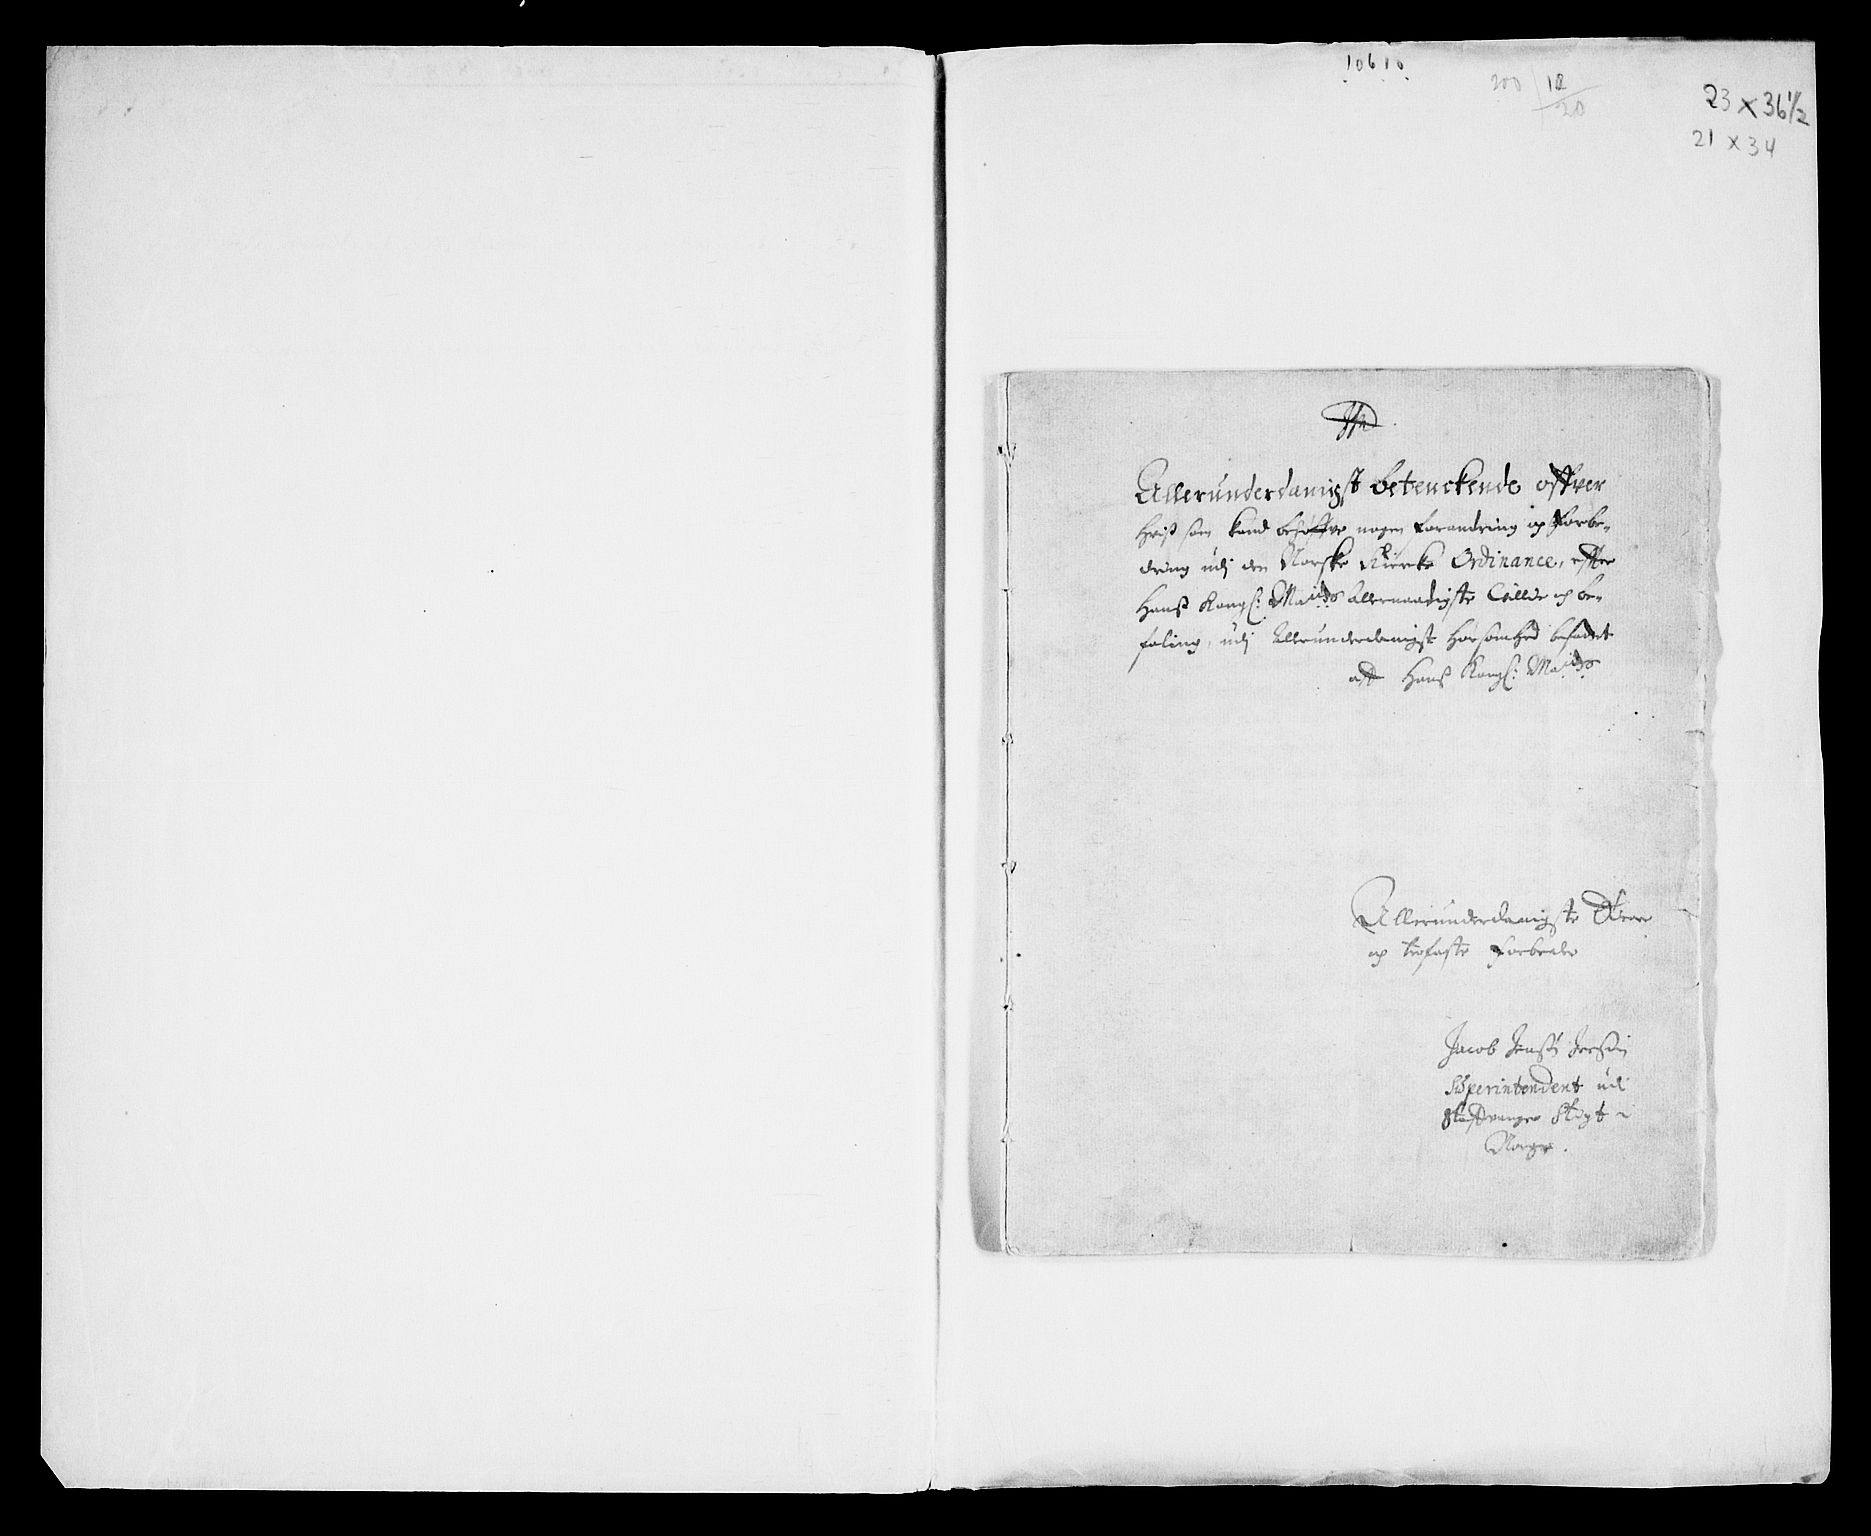 10610
200 | 10
20
23 x 36 1/2
21 x 34
Allerunderdanigst betenckende offver
hvis som kand behöffve nogen forandring og forbe-
dring udj den Norske Kircke Ordinance, effter
Hans Kongl: Maitz allernaadigste Villie og be-
faling, udj allerunderdanigst hörsomhed befattet
aff Hans Kongl: Maitz
Allerunderdanigste
og trofaste forbeder
Jacob Jensön Jersin
Superintendent udi
Staffvanger Stigt i
Norge.